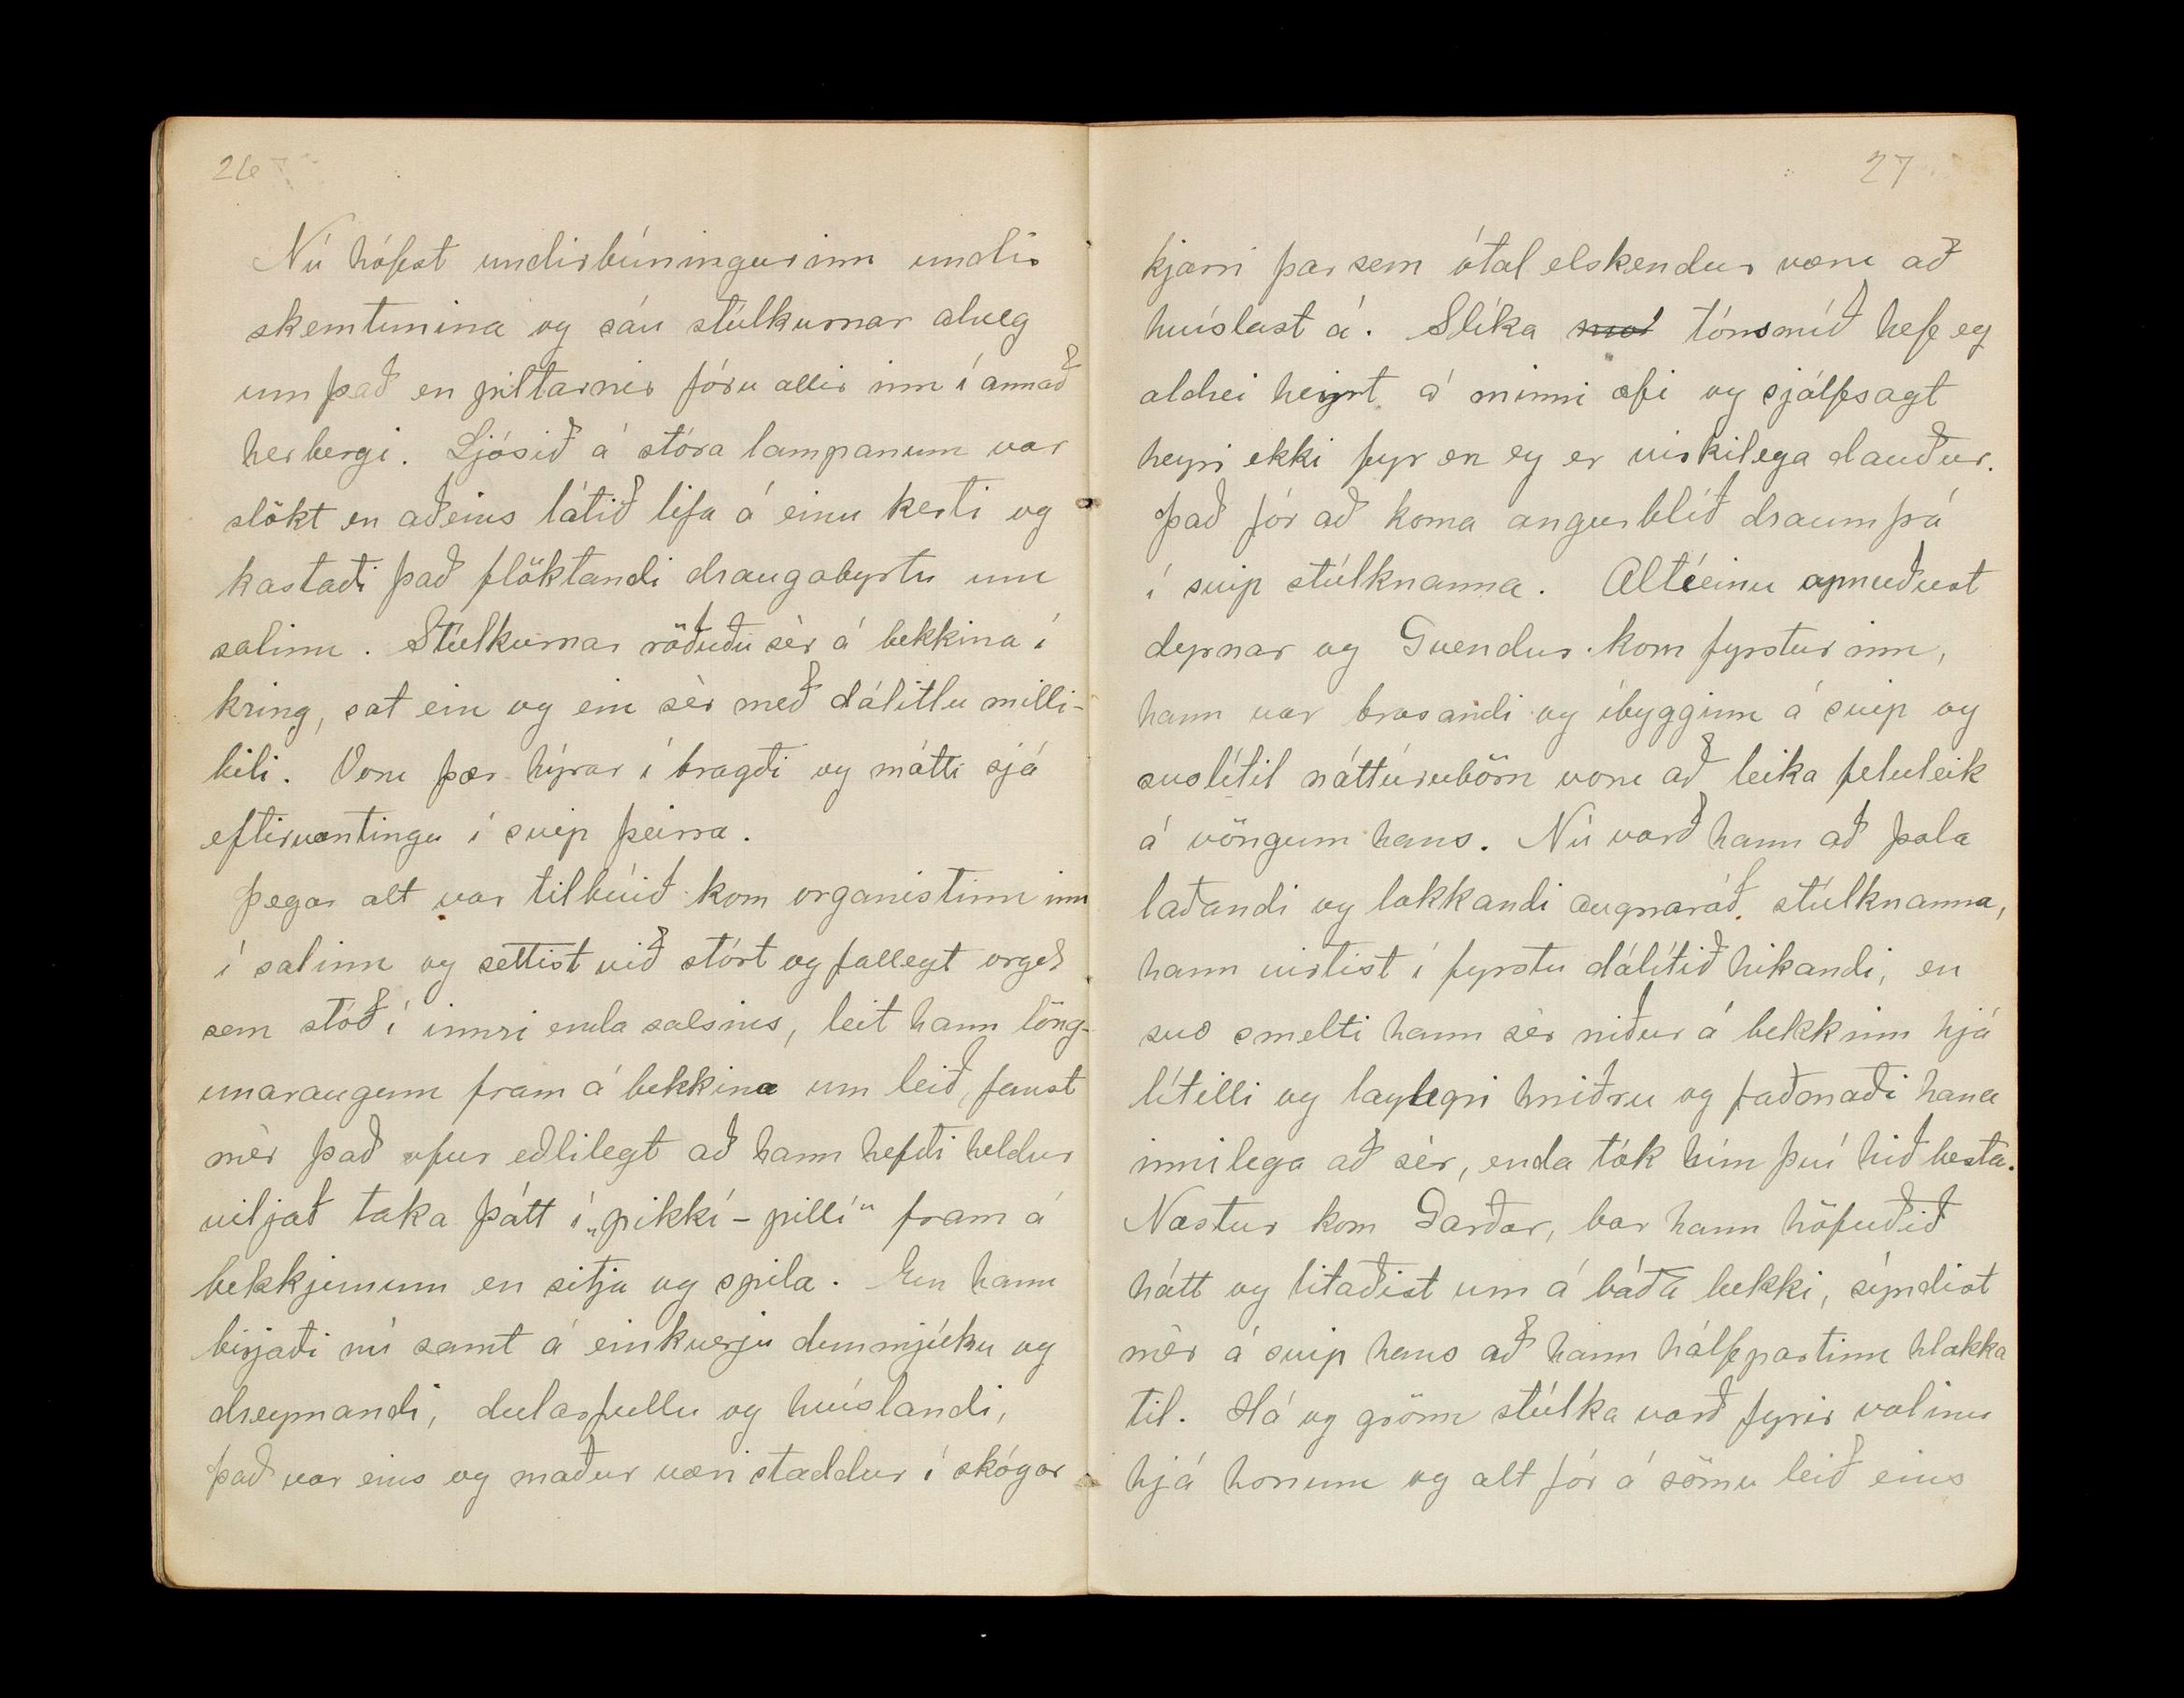 26
Nú hófst undirbúningurinn undir
skemtunina og sáu stúlkurnar alveg
um það en piltarnir fóru allir inn í annað
herbergi. Ljósið á stóra lampanum var
slökt en aðeins látið lifa á einu kerti og
kastaði það flöktandi draugabyrtu um
salinn. Stúlkurnar röðuðu sér á bekkina í
kring, sat ein og ein sér með dálitlu milli-
bili. Voru þær hýrar í bragði og mátti sjá
eftirvæntingu í svip þeirra.
Þegar alt var tilbúið kom organistinn inn
í salinn og settist við stórt og fallegt orgel
sem stóð í innri enda salsins, leit hann löng-
unaraugum fram á bekkina um leið, fanst
mér það ofur eðlilegt að hann hefði heldur
viljað taka þátt í „pikkí-pillí“ fram á
bekkjunum en sitja og spila. En hann
birjaði nú samt á einhverju dunmjúku og
dreymandi, dularfullu og hvíslandi,
það var eins og maður væri staddur í skógar
27
kjarri þar sem ótal elskendur væru að
hvíslast á. Slíka tónsmíð hefe eg
aldrei heyrt á minni æfi og sjálfsagt
heyri ekki fyr en eg er virkilega dauður.
Það fór að koma angurblíð draumþrá
í svip stúlknanna. Altíeinu opnuðust
dyrnar og Gvendur kom fyrstur inn,
hann var brosandi og íbygginn á svip og
svolítil náttúrubörn voru að leika feluleik
á vöngum hans. Nú varð hann að þola
laðandi og lokkandi augnaráð stúlknanna,
hann virtist í fyrstu dálítið hikandi, en
svo smelti hann sér niður á bekkinn hjá
lítilli og laglegri hniðru og faðmaði hana
innilega að sér, enda tók hún því hið besta.
Næstur kom Garðar, bar hann höfuðið
hátt og litaðist um á báða bekki, sýndist
mér á svip hans að hann hálfpartinn hlakka
til. Há og grönn stúlka varð fyrir valinu
hjá honum og alt fór á sömu leið eins